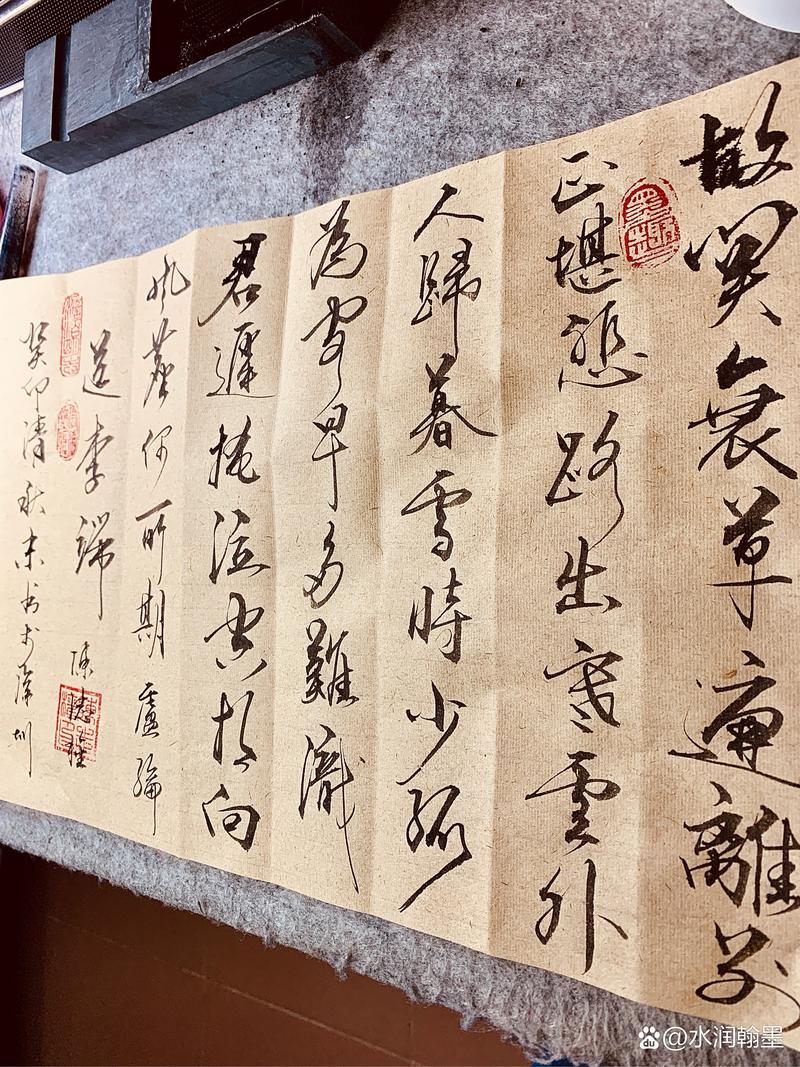 故關衰草遍離別
正堪悲路出寒雲外
人歸暮雪時少孤
為客早多難識
君遲掩泣空相向
風塵何所期盧綸
送李端 陳
癸卯清秋末書於深圳
@水润翰墨